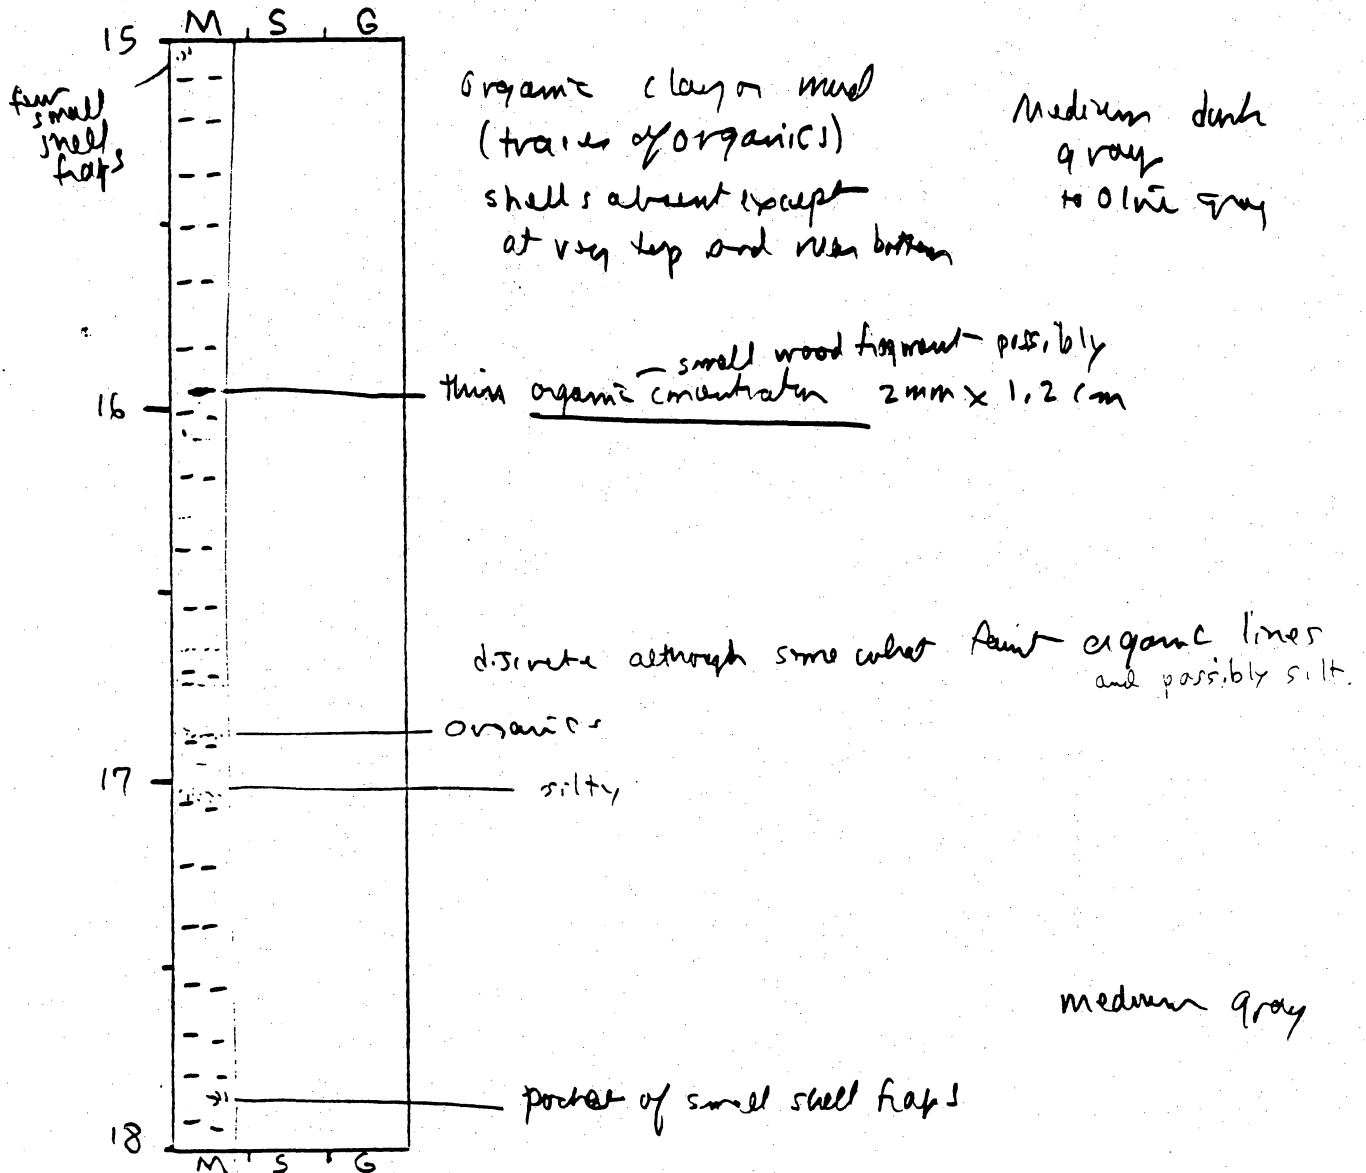 M S G
15
few
small
shell
frags
organic clay or mud
(traces of organics)
shells absent except
at very top and near bottom
Medium dark
gray
to olive gray
small wood fragment possibly
16
thin organic concentration 2mm x 1.2 cm
discrete although somewhat faint organic lines
and possibly silt.
organics
17
silty
medium gray
pocket of small shell frags
18
M S G